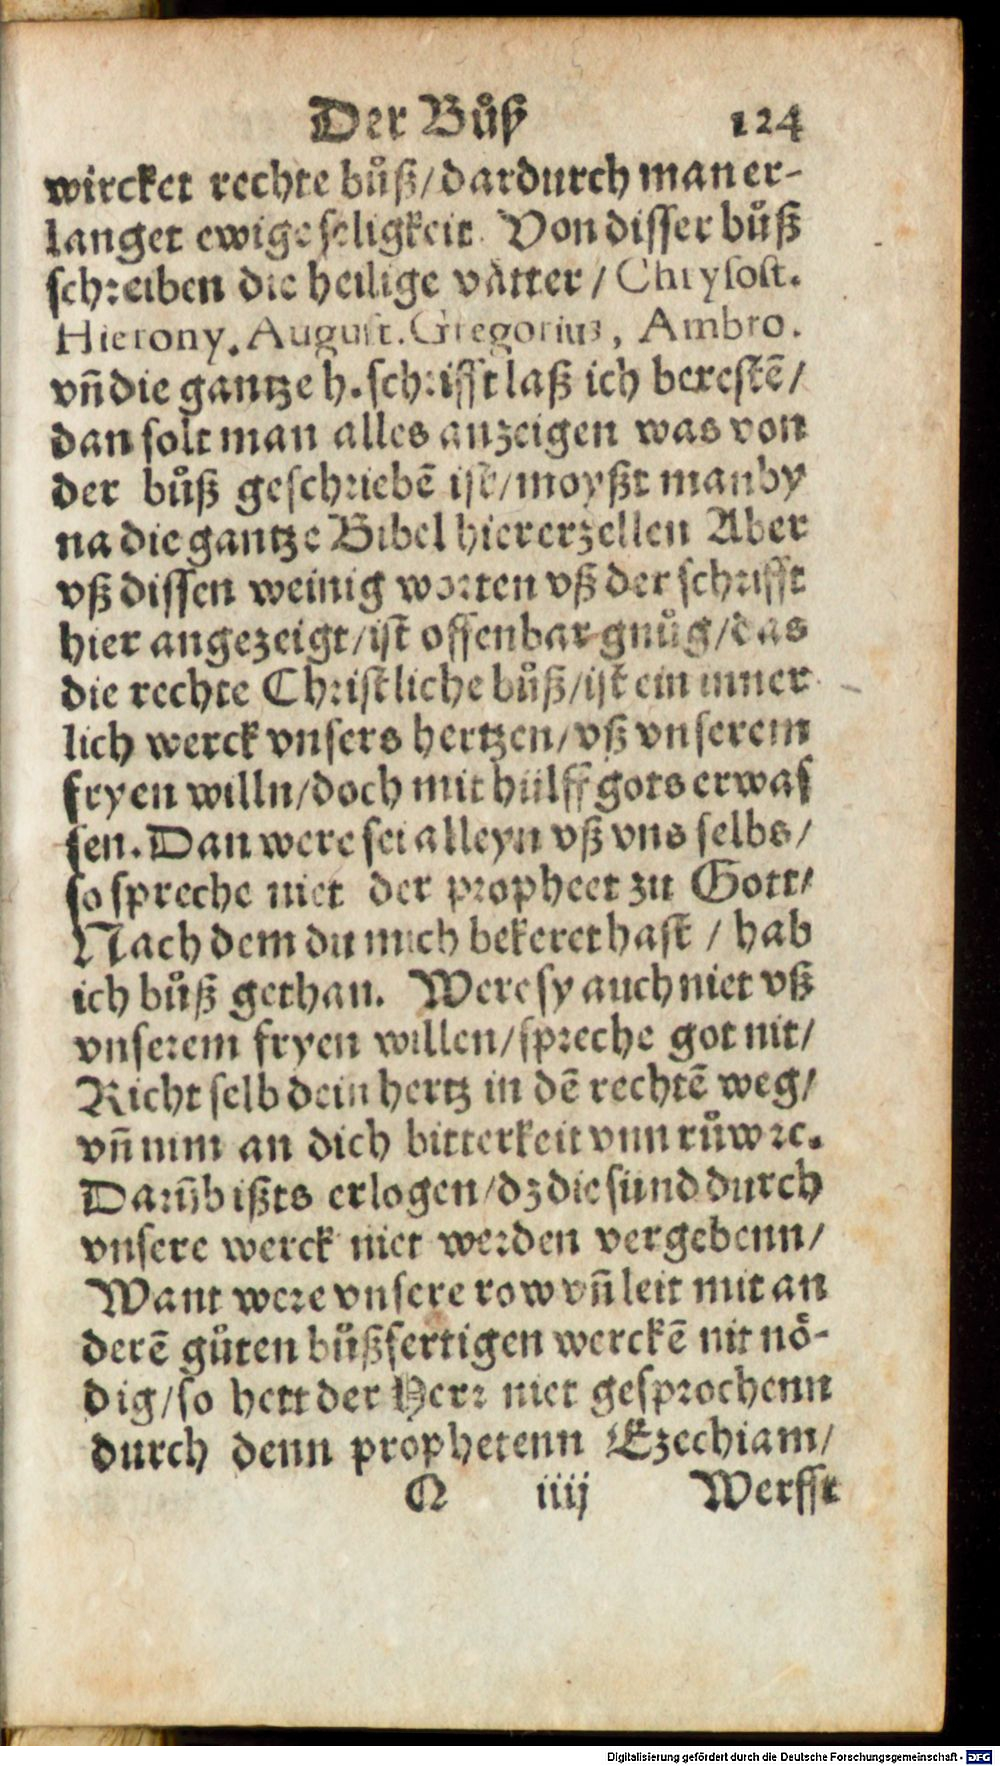 Der Buͦß 124
wircket rechte buͦß/dardurch man er-
langet ewige seligkeit. Von disser buͦß
schreiben die heilige vaͤtter / Chrysost.
Hierony. August. Gregorius, Ambro.
vñ die gantze h. schrifft laß ich berestē/
dan solt man alles anzeigen was von
der buͦß geschriebē ist/moyßt man by
na die gantze Bibel hier erzellen Aber
vß dissen weinig worten vß der schrifft
hier angezeigt/ist offenbar gnuͦg/das
die rechte Christliche buͦß/ist ein inner
lich werck vnsers hertzen/vß vnserem
fryen willn/doch mit hülff gots erwas
sen. Dan were sei alleyn vß vns selbs/
so spreche niet der propheet zu Gott/
Nach dem du mich bekeret hast / hab
ich buͦß gethan. Were sy auch niet vß
vnserem fryen willen/spreche got nit/
Richt selb dein hertz in dē rechtē weg/
vñ nim an dich bitterkeit vnn ruͦw ꝛc.
Darūb ißts erlogen/dz die sünd durch
vnsere werck niet werden vergebenn/
Want were vnsere row vñ leit mit an
derē guͦten buͦßfertigen werckē nit noͤ-
dig/so hett der Herr niet gesprochenn
durch denn prophetenn Ezechiam/
Q iiij Werfft
Digitalisierung gefördert durch die Deutsche Forschungsgemeinschaft - DFG